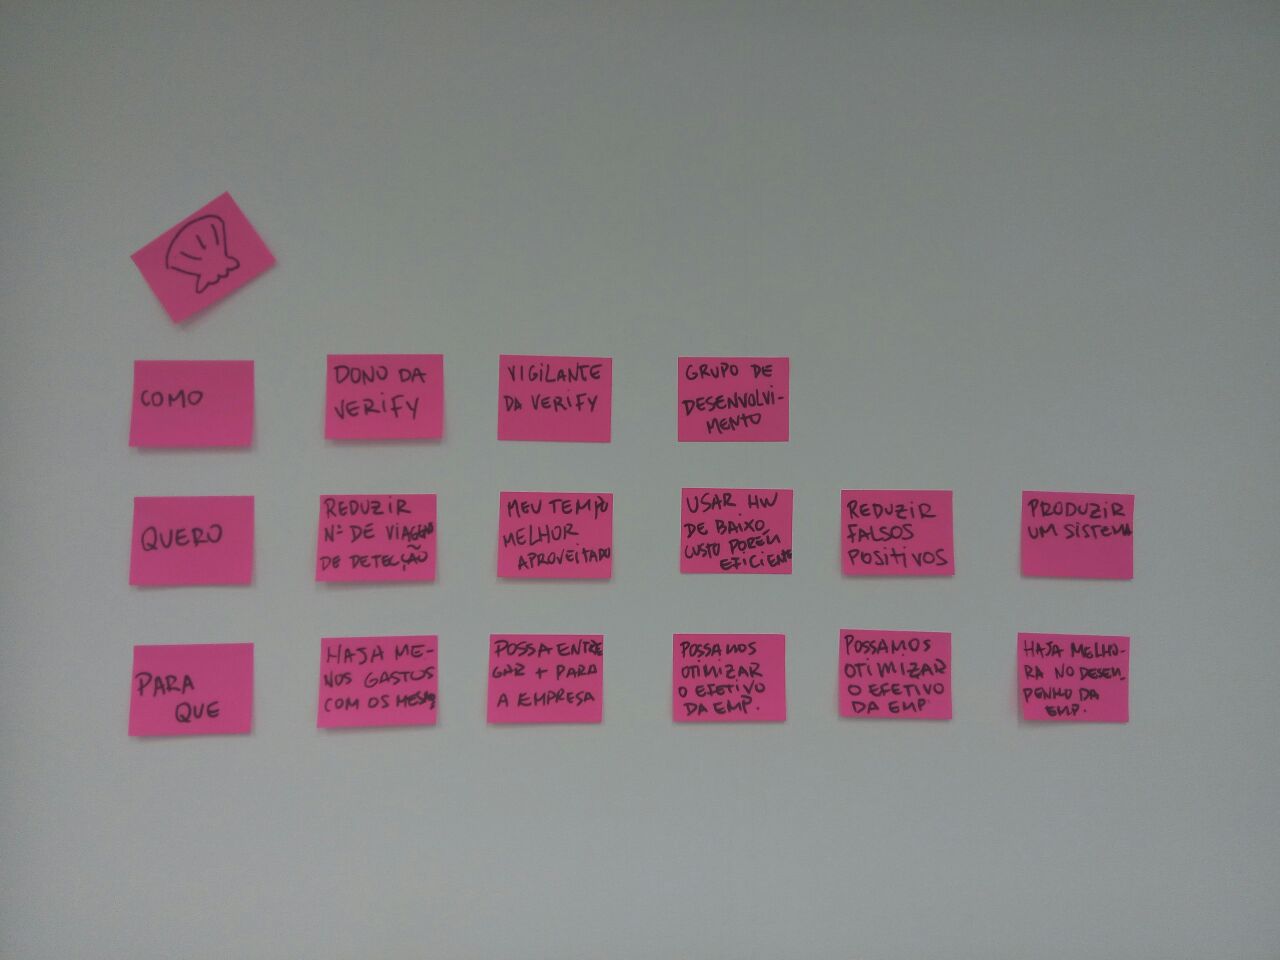 COMO
DONO DA
VERIFY
VIGILANTE
DA VERIFY
GRUPO DE
DESENVOLVI-
MENTO
QUERO
REDUZIR
Nº DE VIAGENS
DE DETECÇÃO
MEU TEMPO
MELHOR
APROVEITADO
USAR HW
DE BAIXO
CUSTO PORÉM
EFICIENTE
REDUZIR
FALSOS
POSITIVOS
PRODUZIR
UM SISTEMA
PARA
QUE
HAJA ME-
NOS GASTOS
COM OS MESMOS
POSSA ENTRE
GAR + PARA
A EMPRESA
POSSAMOS
OTIMIZAR
O EFETIVO
DA EMP.
POSSAMOS
OTIMIZAR
O EFETIVO
DA EMP
HAJA MELHO-
RA NO DESEM
PENHO DA
EMP.